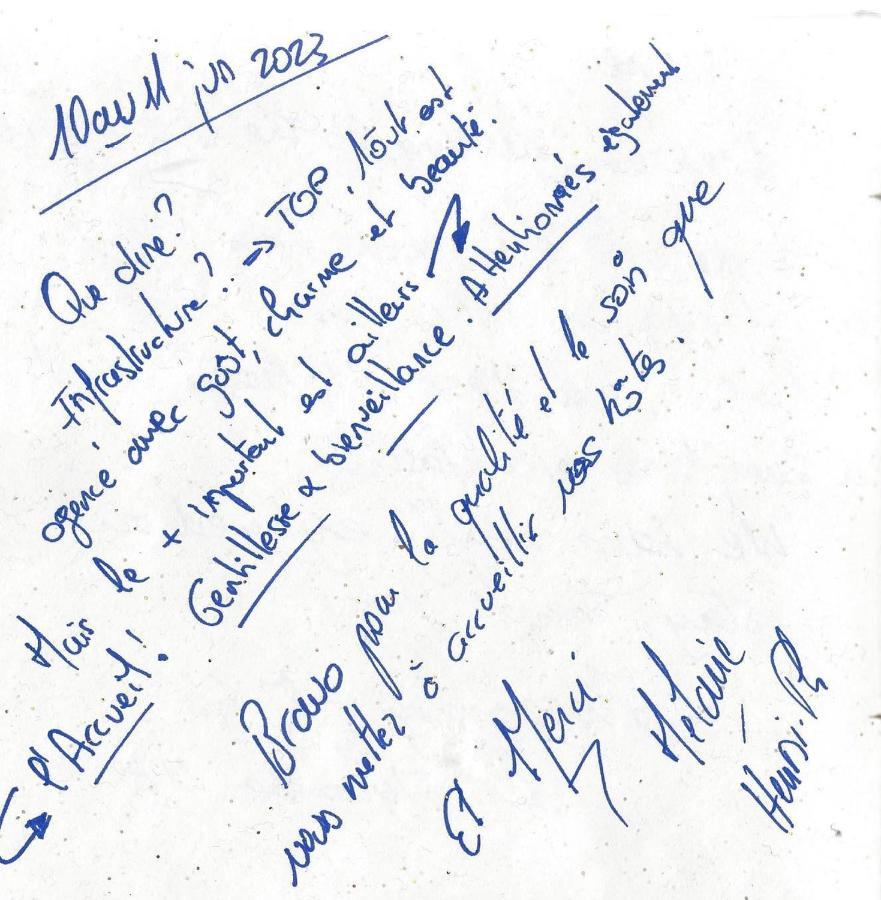 10 au 11 juin 2023
Que dire?
Infrastructure? .. => TOP, tout est
agencé avec goût, charme et beauté.
Mais le + important est ailleurs
↳ l'Accueil! Gentillesse & bienveillance. Attentionnés également
Bravo pour la qualité et le soin que
vous mettez à accueillir vos hôtes.
Et Merci
Mélanie
Henri-Ph